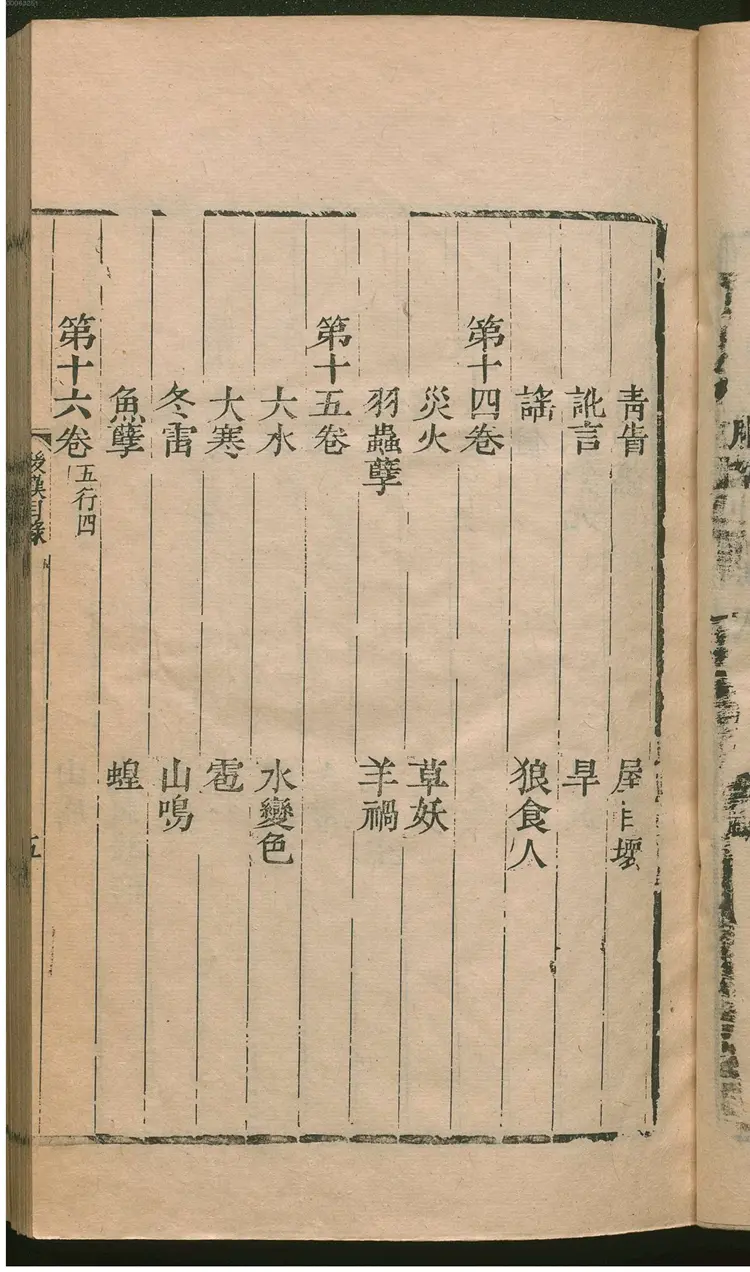 青眚 屋自壞
訛言 旱
謠 狼食人
第十四卷
災火 草妖
羽蟲孽 羊禍
第十五卷
大水 水變色
大寒 雹
冬雷 山鳴
魚孽 蝗
第十六卷 五行四
後漢目錄 五